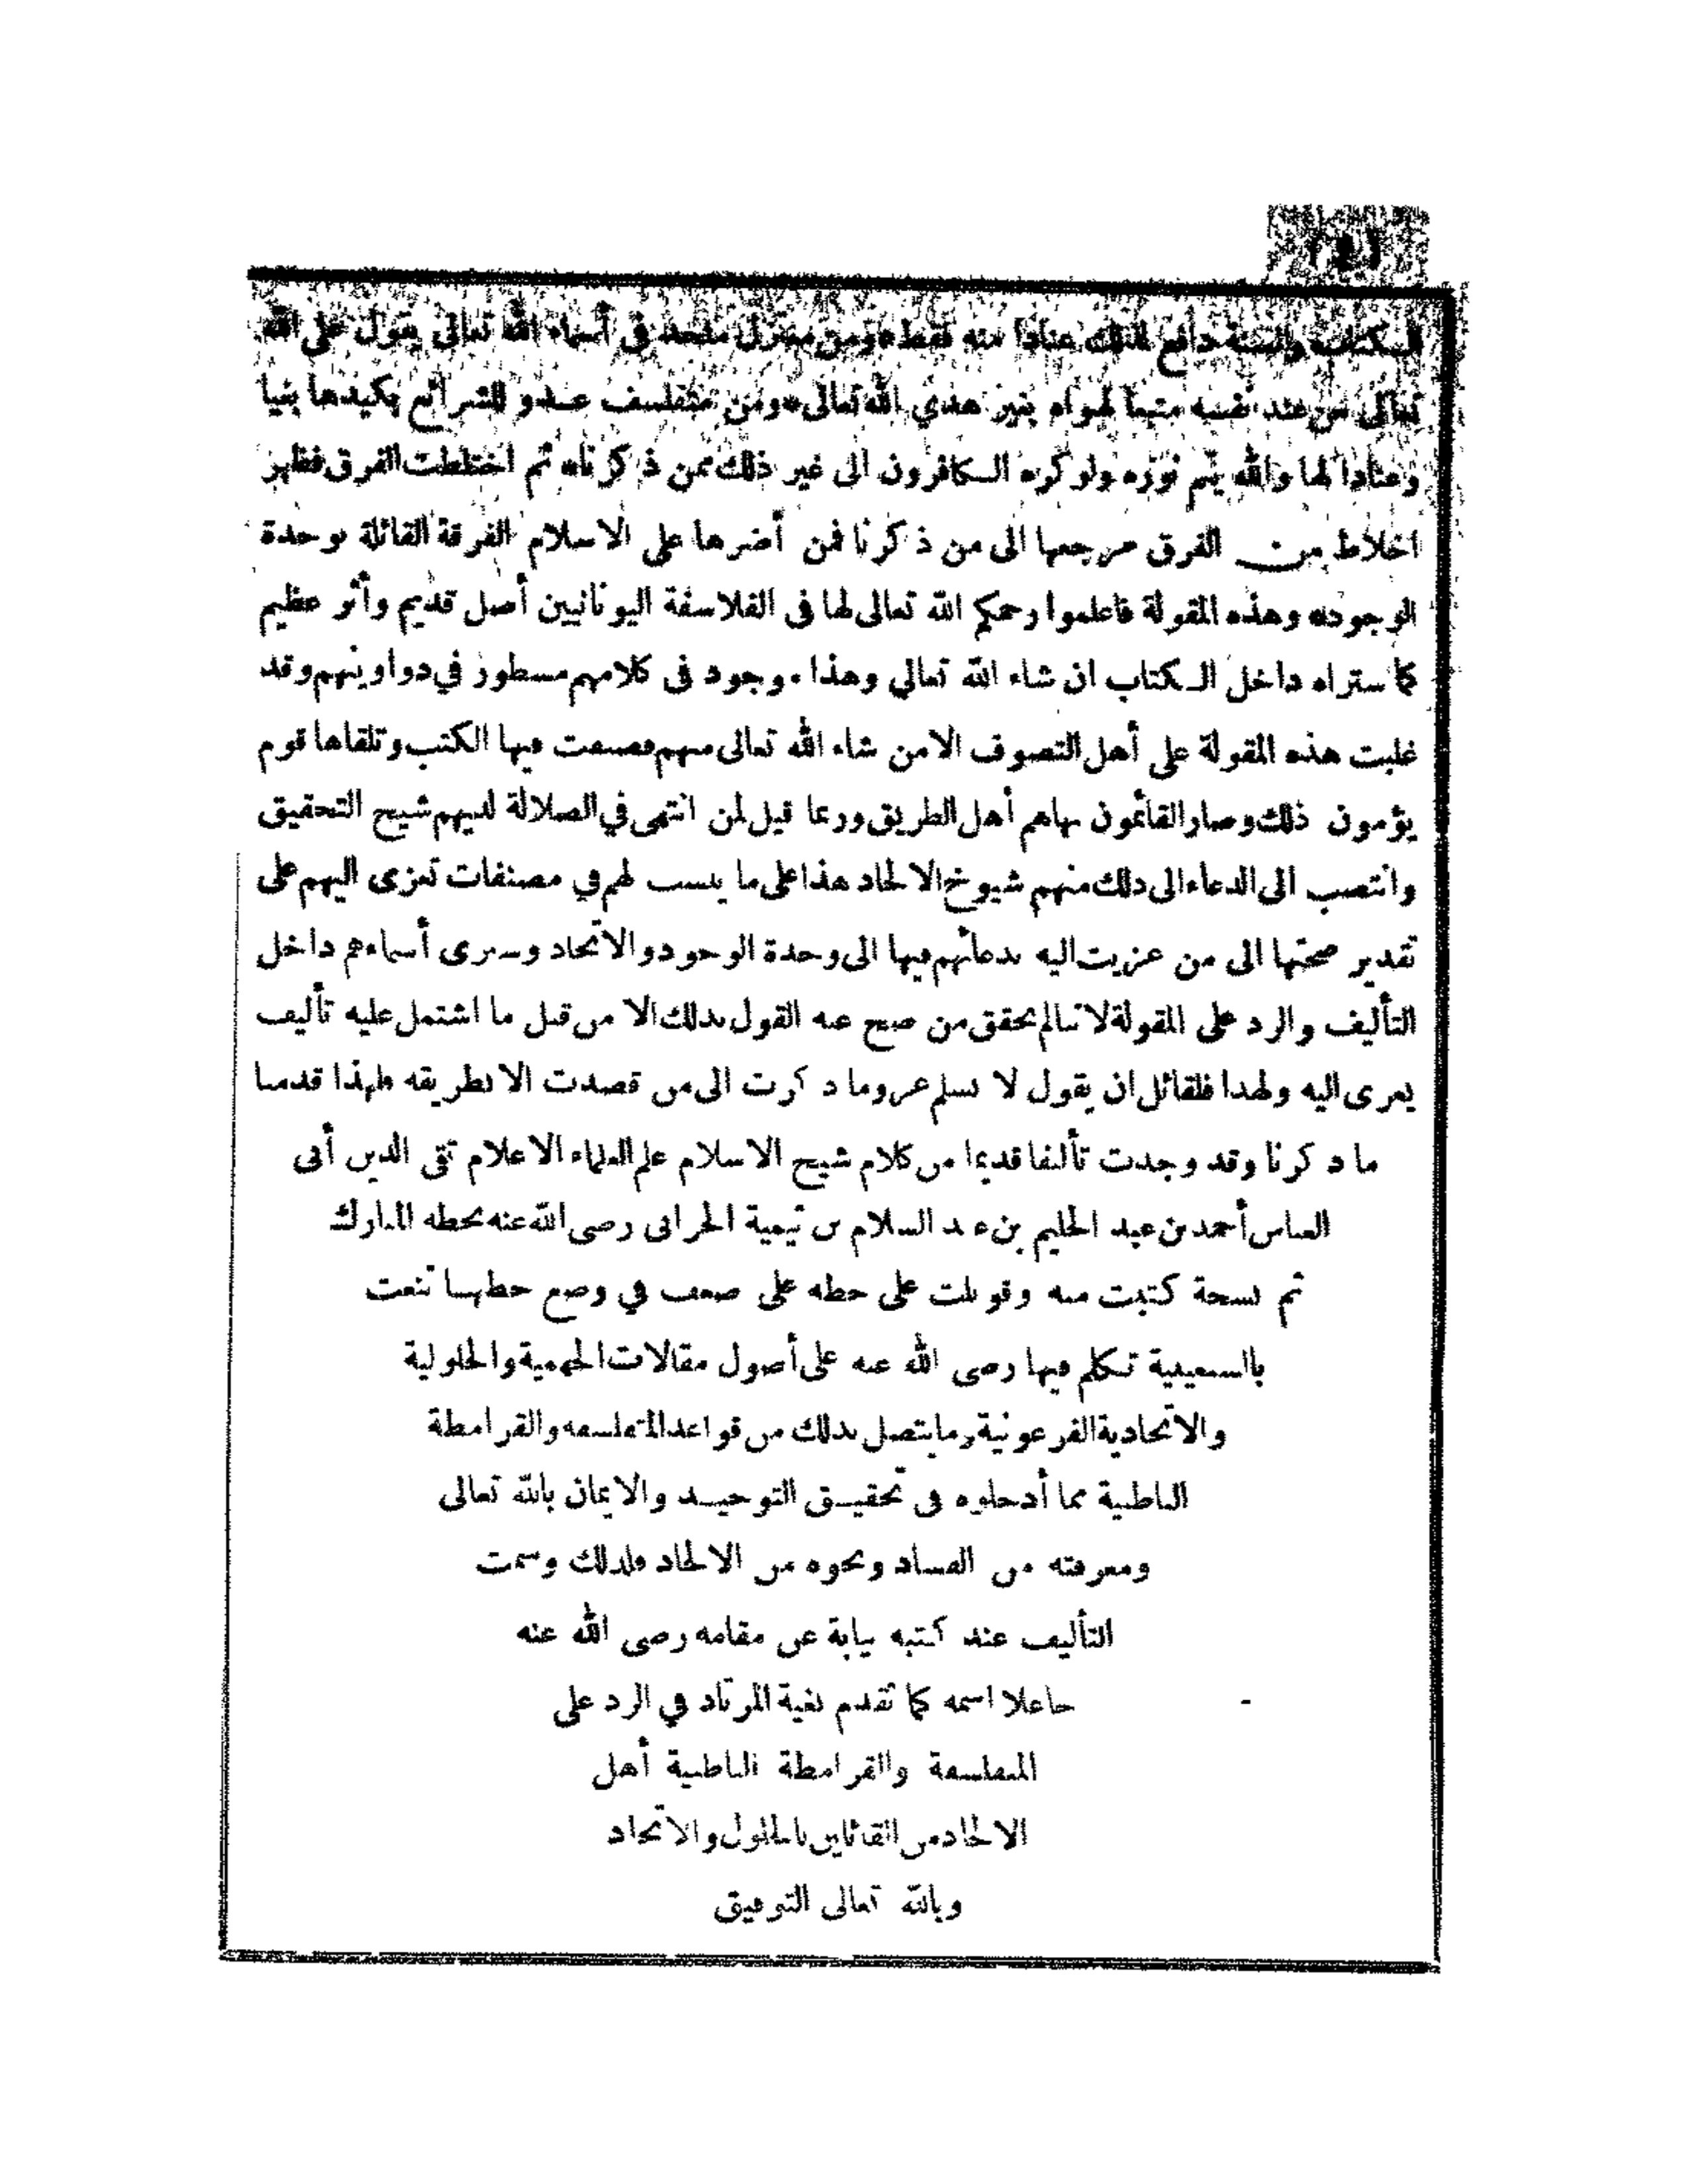 الكتاب والسنة دافع لذلك عنادا منه فقط * ومن معتزل ملحد في أسماء الله تعالى يقول على الله
تعالى من عند نفسه متبعا لهواه بغير هدي الله تعالى * ومن متفلسف عدو للشرائع يكيدها بغيا
وعنادا لها والله يتم نوره ولو كره الكافرون الى غير ذلك ممن ذكرناه ثم اختلطت الفرق فظهر
اخلاط من الفرق مرجعها الى من ذكرنا فمن أضرها على الاسلام الفرقة القائلة بوحدة
الوجود * وهذه المقولة فاعلموا رحمكم الله تعالى لها فى الفلاسفة اليونانيين أصل قديم وأثر عظيم
كما ستراه داخل الكتاب ان شاء الله تعالي وهذا موجود فى كلامهم مسطور في دواوينهم وقد
غلبت هذه المقولة على أهل التصوف الا من شاء الله تعالى منهم فصنفت فيها الكتب وتلقاها قوم
يؤمون ذلك وصار القائمون بها هم أهل الطريق وربما قيل لمن انتهى في الضلالة لديهم شيخ التحقيق
وانتصب الى الدعاء الى ذلك منهم شيوخ الالحاد هذا على ما ينسب لهم في مصنفات تعزى اليهم على
تقدير صحتها الى من عزيت اليه بدعائهم فيها الى وحدة الوجود والاتحاد وسترى أسماءهم داخل
التأليف والرد على المقولة لانا لم نحقق من صح عنه القول بذلك الا من قبل ما اشتمل عليه تأليف
يعزى اليه ولهذا فلقائل ان يقول لا نسلم عزو ما ذكرت الى من قصدت الا بطريقه فلهذا قدمنا
ما ذكرنا وقد وجدت تأليفا قديما من كلام شيخ الاسلام علم العلماء الاعلام تقى الدين أبى
العباس أحمد بن عبد الحليم بن عبد السلام بن تيمية الحرانى رضى الله عنه بخطه المبارك
ثم نسخة كتبت منه وقوبلت على خطه على ضعف في وضع خطها تنعت
بالسبعينية تكلم فيها رضى الله عنه على أصول مقالات الجهمية والحلولية
والاتحادية الفرعونية وما يتصل بذلك من قواعد المتفلسفه والقرامطة
الباطنية مما أدخلوه فى تحقيق التوحيد والايمان بالله تعالى
ومعرفته من الفساد ونحوه من الالحاد فلذلك وسمت
التأليف عند كتبه نيابة عن مقامه رضى الله عنه
جاعلا اسمه كما تقدم بغية المرتاد في الرد على
المتفلسفة والقرامطة الباطنية أهل
الالحاد من القائلين بالحلول والاتحاد
وبالله تعالى التوفيق